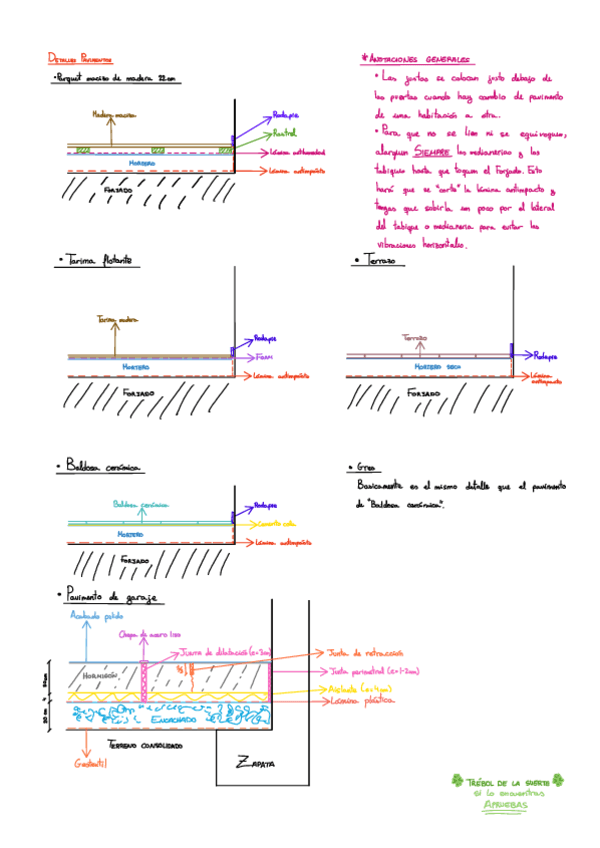 DETALLES PAVIMENTOS
• Parquet macizo de madera 22cm
Madera maciza
Rodapié
Rastrel
Lámina antihumedad
MORTERO
Lámina antiimpacto
FORJADO
* ANOTACIONES GENERALES
• Las juntas se colocan justo debajo de
las puertas cuando hay cambio de pavimento
de una habitación a otra.
• Para que no se líen ni se equivoquen,
alarguen SIEMPRE las medianerías y los
tabiques hasta que toquen el Forjado. Esto
hará que se "corte" la lámina antiimpacto y
tengas que subirla un poco por el lateral
del tabique o medianería para evitar las
vibraciones horizontales.
• Tarima flotante
Tarima madera
Rodapié
FOAM
MORTERO
Lámina antiimpacto
FORJADO
• Terrazo
Terrazo
Rodapié
MORTERO SECO
Lámina
antiimpacto
FORJADO
• Baldosa cerámica
Baldosa cerámica
Rodapié
Cemento cola
MORTERO
Lámina antiimpacto
FORJADO
• Gres
Basicamente es el mismo detalle que el pavimento
de "Baldosa cerámica".
• Pavimento de garaje
Acabado pulido
Chapa de acero liso
Junta de dilatación (e=3cm)
Junta de retracción
HORMIGÓN
Junta perimetral (e=1-2cm)
Aislante (e=4cm)
Lámina plástica
20 cm
ENCACHADO
TERRENO CONSOLIDADO
Geotextil
ZAPATA
TRÉBOL DE LA SUERTE
SI LO ENCUENTRAS
APRUEBAS